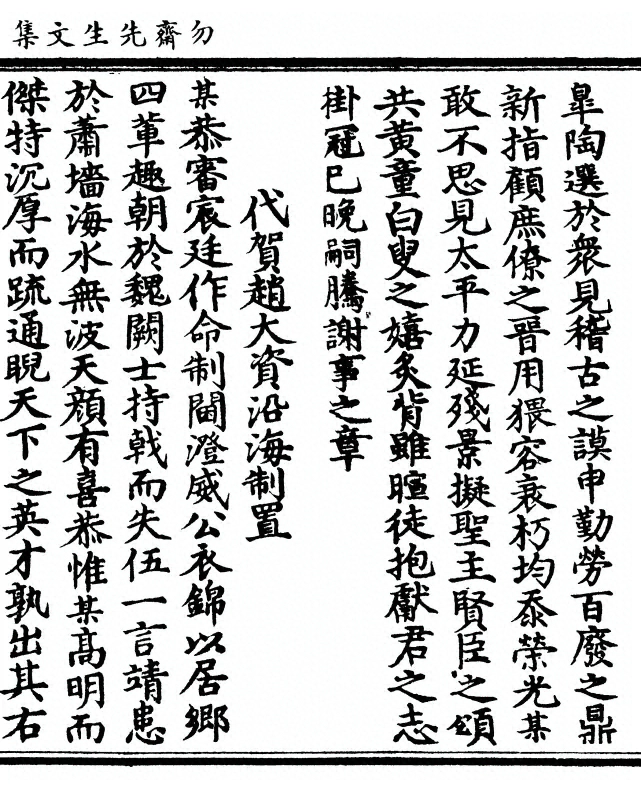 勿齋先生文集
皐陶選於衆見稽古之謨申勤勞百廢之鼎
新指顧庶僚之晉用猥容衰朽均忝榮光某
敢不思見太平力延殘景擬聖主賢臣之頌
共黃童白叟之嬉炙背雖暄徒抱獻君之志
掛冠已晚嗣騰謝事之章
代賀趙大資沿海制置
某恭審宸廷作命制閫澄威公衣錦以居鄉
四輩趣朝於魏闕士持戟而失伍一言靖患
於蕭墻海水無波天顔有喜恭惟某高明而
傑特沉厚而疏通睨天下之英才孰出其右